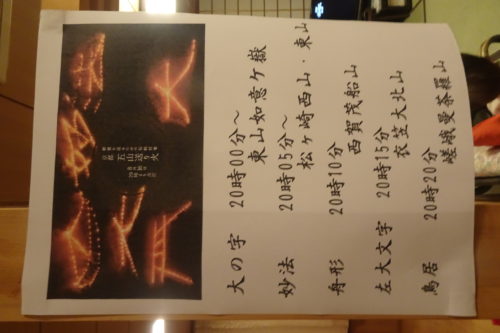 京都 五山送り火
大の字 20時00分～
東山如意ケ嶽
妙法 20時05分～
松ヶ崎西山・東山
舟形 20時10分
西賀茂船山
左大文字 20時15分
衣笠大北山
鳥居 20時20分
嵯峨曼荼羅山